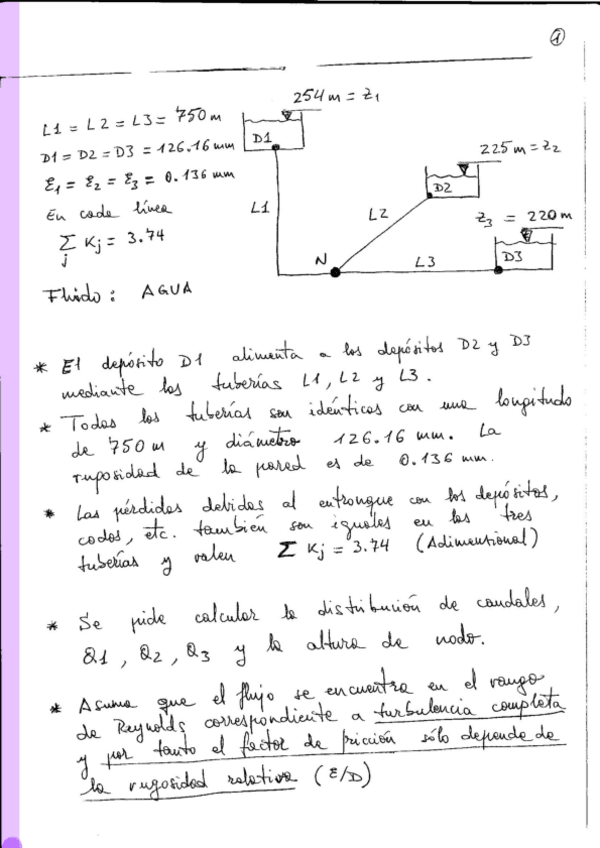 1
L1 = L2 = L3 = 750 m
D1 = D2 = D3 = 126.16 mm
ε1 = ε2 = ε3 = 0.136 mm
En cada línea
Σj Kj = 3.74
Fluido: AGUA
254 m = Z1
D1
225 m = Z2
D2
Z3 = 220 m
D3
L1
L2
L3
N
* El depósito D1 alimenta a los depósitos D2 y D3
mediante las tuberías L1, L2 y L3.
* Todas las tuberías son idénticas con una longitud
de 750 m y diámetro 126.16 mm. La
rugosidad de la pared es de 0.136 mm.
* Las pérdidas debidas al entronque con los depósitos,
codos, etc. también son iguales en las tres
tuberías y valen Σ Kj = 3.74 (Adimensional)
* Se pide calcular la distribución de caudales,
Q1, Q2, Q3 y la altura de nodo.
* Asuma que el flujo se encuentra en el rango
de Reynolds correspondiente a turbulencia completa
y por tanto el factor de fricción sólo depende de
la rugosidad relativa (ε/D)